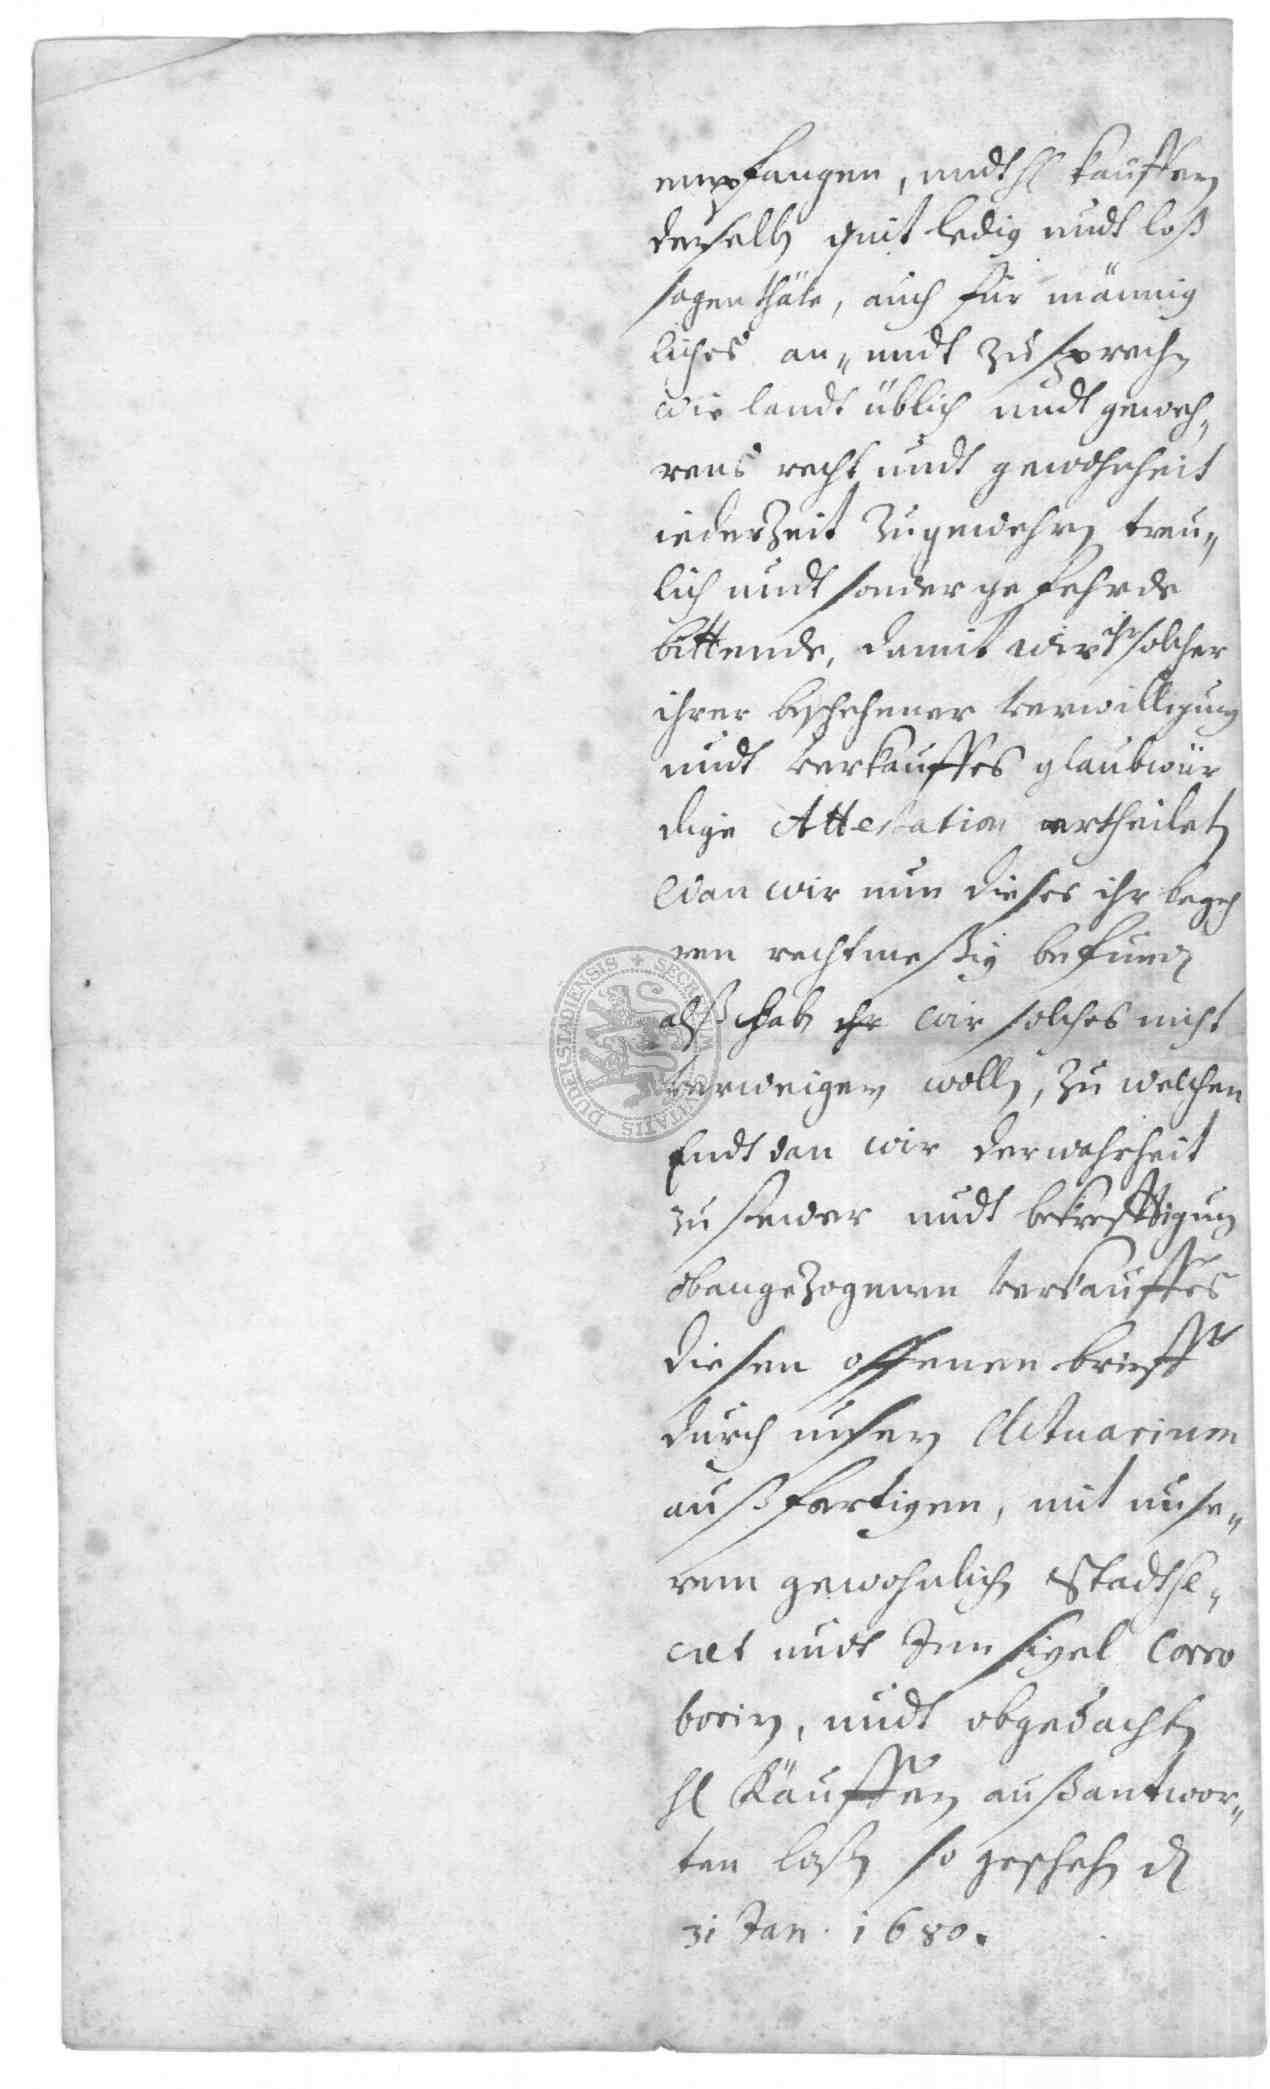 empfangen, undt H Kauffern
derselb quit ledig undt loß
sagen thäte, auch für männig
liches an- undt zusprech
wie landt üblich undt geweh-
rens recht undt gewohnheit
iederzeit zugewehrn treu-
lich undt sonder gefehrde
bittende, damit wir ihr solcher
ihrer beschehener verwilligung
undt verkauffes glaubwür
dige Attestation ertheilet
Wan wir nun dieses ihr begeh
ren rechtmeßig befund
alß hab ihr wir solches nicht
verweigern woll, zu welchen
Endt dan wir der wahrheit
zu stewer undt bekrefftigung
obangezogenen verkauffes
diesen offenen brieff
durch unsern Actuarium
außfertigen, mit unse-
rem gewohnlich Stadtse-
cret undt Innsigel Corro
borirn, undt obgedacht
H Käuffern außantwor-
ten laß so gescheh d
31 Jan. 1680.
SECRETUM CIVITATIS DUDERSTADIENSIS